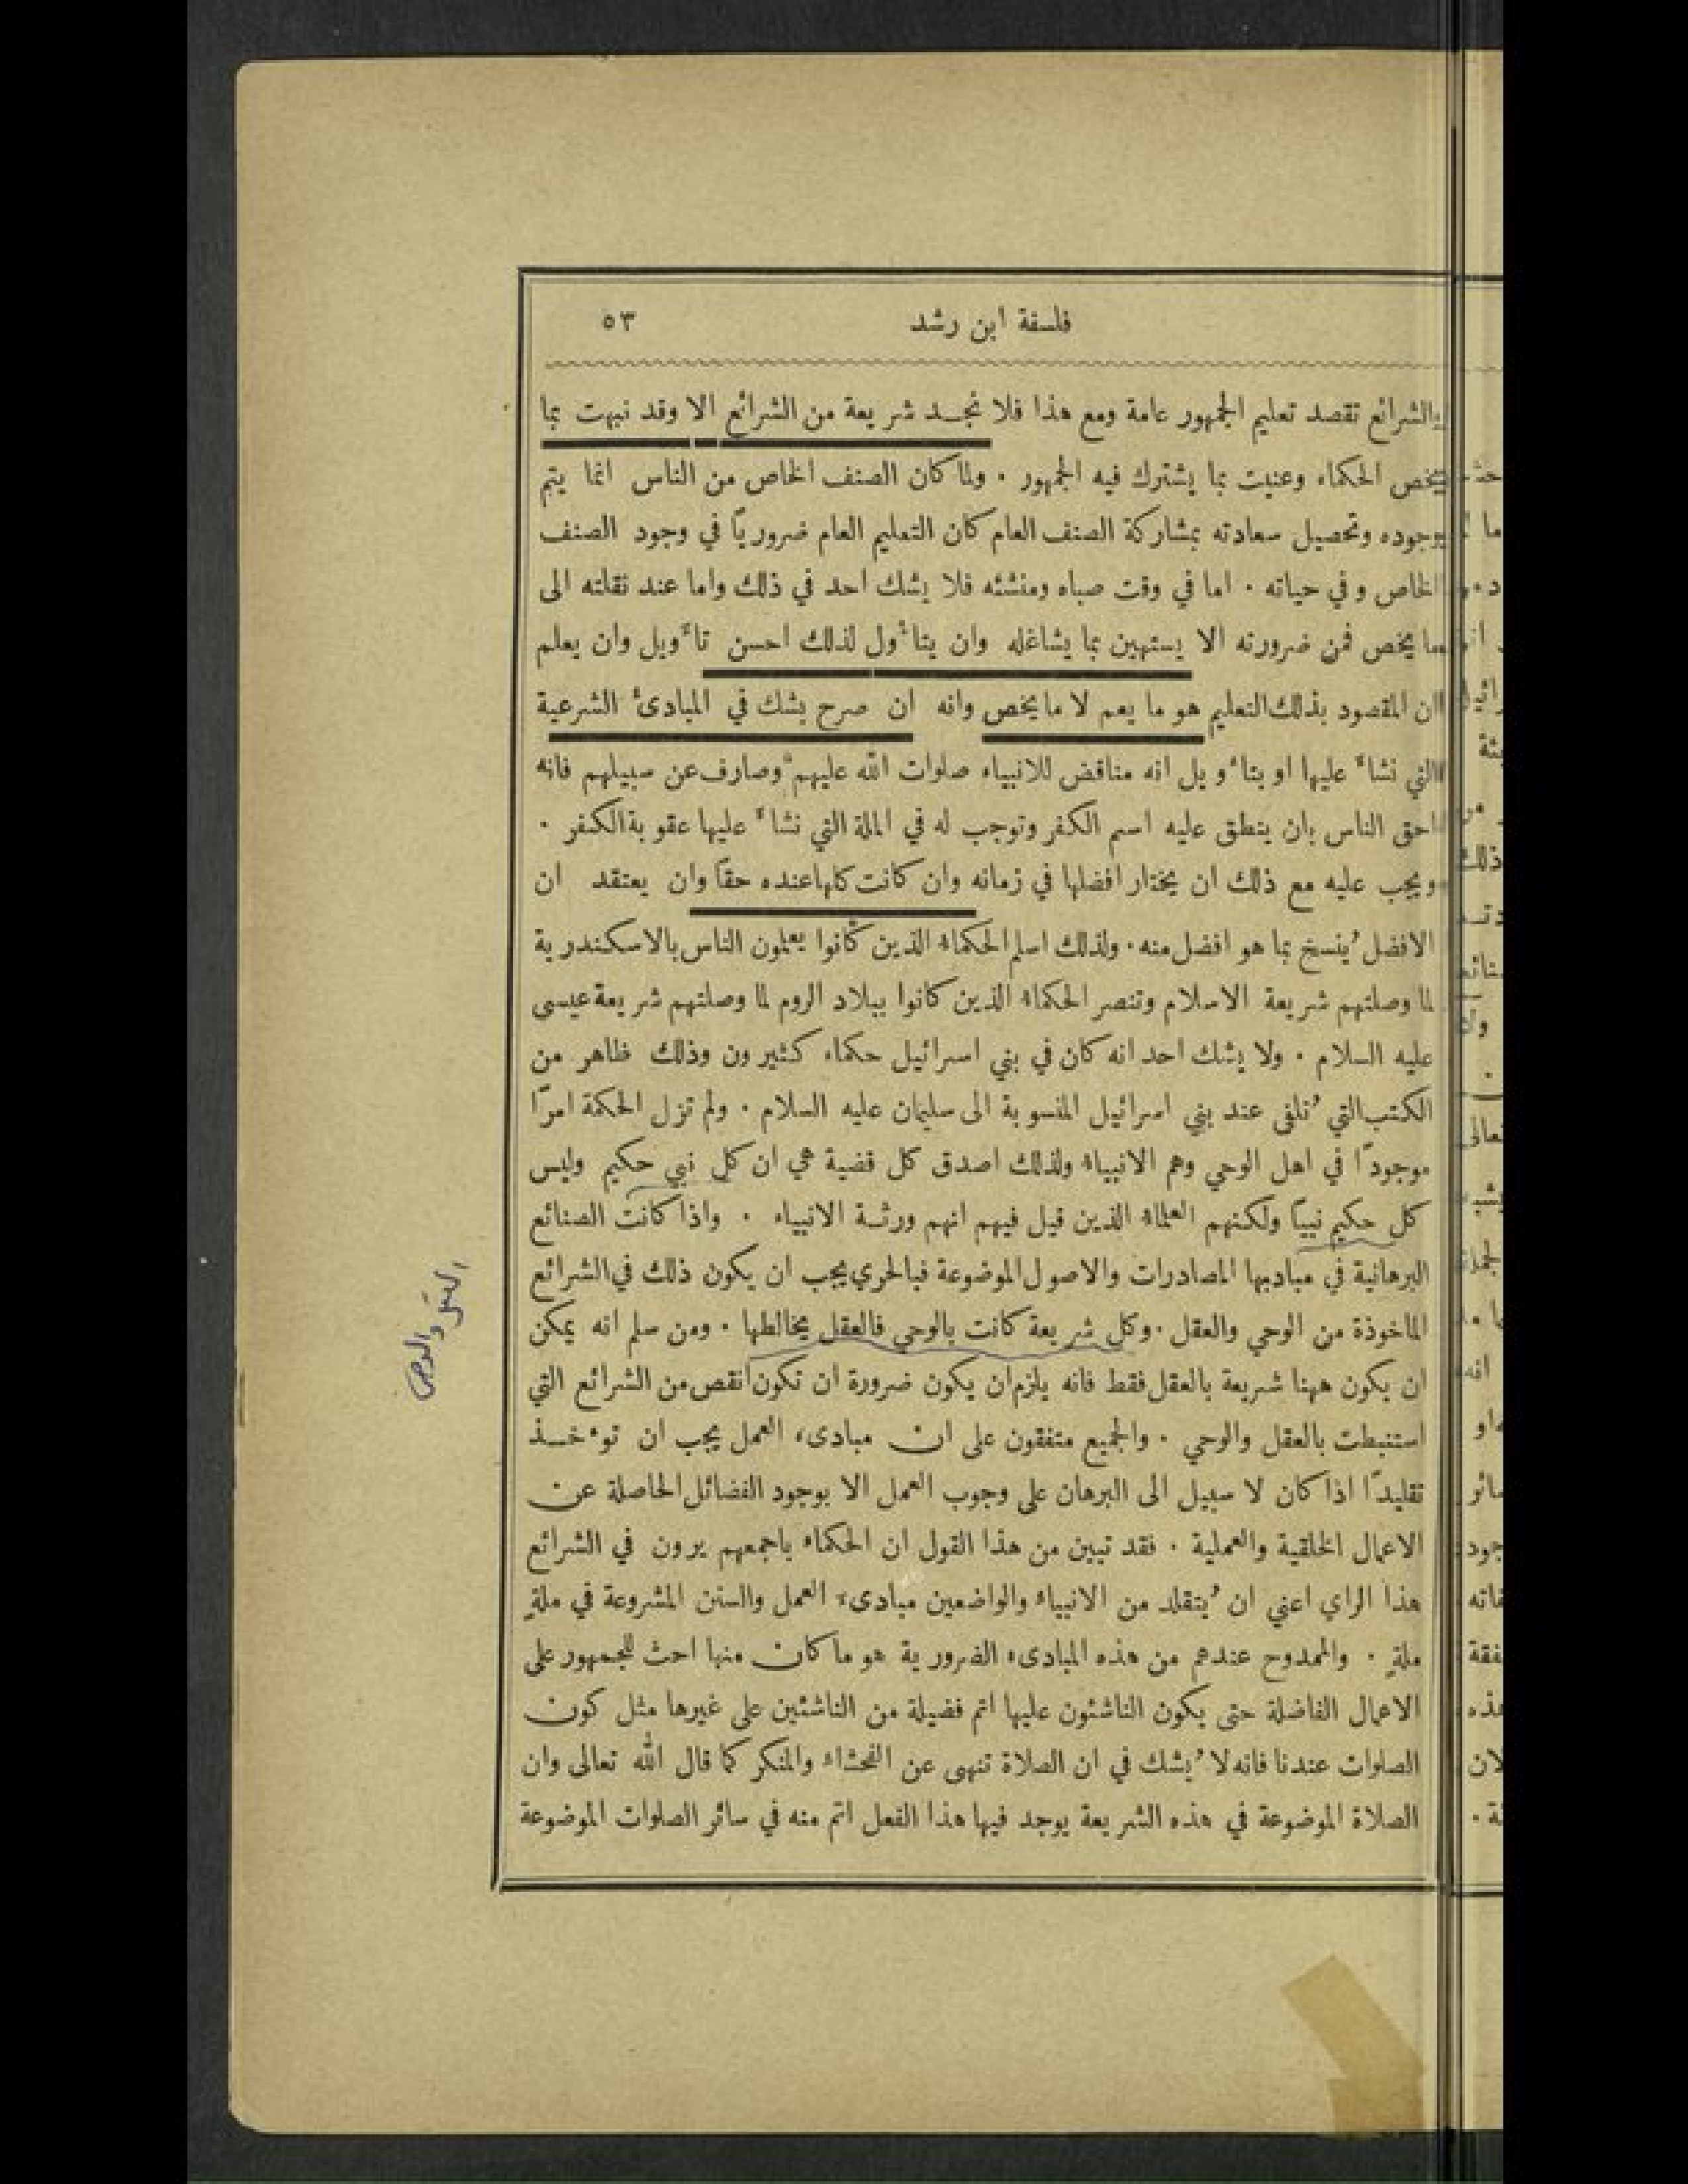 فلسفة ابن رشد
٥٣
والشرائع تقصد تعليم الجمهور عامة ومع هذا فلا نجد شريعة من الشرائع الا وقد نبهت بما
يخص الحكماء وعنيت بما يشترك فيه الجمهور . ولما كان الصنف الخاص من الناس انما يتم
وجوده وتحصيل سعادته بمشاركة الصنف العام كان التعليم العام ضروريًا في وجود الصنف
الخاص وفي حياته . اما في وقت صباه ومنشئه فلا يشك احد في ذلك واما عند نقلته الى
ما يخص فمن ضرورته الا يستهين بما يشاغله وان يتأول لذلك احسن تأويل وان يعلم
ان المقصود بذلك التعليم هو ما يعم لا ما يخص وانه ان صرح بشك في المبادئ الشرعية
التي نشأ عليها او بتأويل انه مناقض للانبياء صلوات الله عليهم وصارف عن سبيلهم فانه
احق الناس بان ينطق عليه اسم الكفر وتوجب له في الملة التي نشأ عليها عقوبة الكفر .
ويجب عليه مع ذلك ان يختار افضلها في زمانه وان كانت كلها عنده حقًا وان يعتقد ان
الافضل يُنسخ بما هو افضل منه . ولذلك اسلم الحكماء الذين كانوا يعلمون الناس بالاسكندرية
لما وصلتهم شريعة الاسلام وتنصر الحكماء الذين كانوا ببلاد الروم لما وصلتهم شريعة عيسى
عليه السلام . ولا يشك احد انه كان في بني اسرائيل حكماء كثيرون وذلك ظاهر من
الكتب التي تُلفى عند بني اسرائيل المنسوبة الى سليمان عليه السلام . ولم تزل الحكمة امرًا
موجودًا في اهل الوحي وهم الانبياء ولذلك اصدق كل قضية هي ان كل نبي حكيم وليس
كل حكيم نبيًا ولكنهم العلماء الذين قيل فيهم انهم ورثة الانبياء . واذا كانت الصنائع
البرهانية في مباديها المصادرات والاصول الموضوعة فبالحري يجب ان يكون ذلك في الشرائع
الماخوذة من الوحي والعقل . وكل شريعة كانت بالوحي فالعقل يخالطها . ومن سلم انه يمكن
ان يكون ههنا شريعة بالعقل فقط فانه يلزم ان يكون ضرورة ان تكون انقص من الشرائع التي
استنبطت بالعقل والوحي . والجميع متفقون على ان مبادىء العمل يجب ان تؤخذ
تقليدًا اذا كان لا سبيل الى البرهان على وجوب العمل الا بوجود الفضائل الحاصلة عن
الاعمال الخلقية والعملية . فقد تبين من هذا القول ان الحكماء باجمعهم يرون في الشرائع
هذا الراي اعني ان يُتقلد من الانبياء والواضعين مبادىء العمل والسنن المشروعة في ملةٍ
ملةٍ . والممدوح عندهم من هذه المبادىء الضرورية هو ما كان منها احث للجمهور على
الاعمال الفاضلة حتى يكون الناشئون عليها اتم فضيلة من الناشئين على غيرها مثل كون
الصلوات عندنا فانه لا يُشك في ان الصلاة تنهى عن الفحشاء والمنكر كما قال الله تعالى وان
الصلاة الموضوعة في هذه الشريعة يوجد فيها هذا الفعل اتم منه في سائر الصلوات الموضوعة